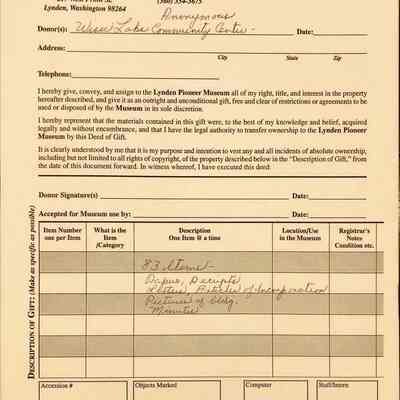 Lynden, Washington 98264
(360) 354-3675
Anonymous
Donor(s): Wiser Lake Community Center - Date:
Address:
City State Zip
Telephone:
I hereby give, convey, and assign to the Lynden Pioneer Museum all of my right, title, and interest in the property
hereafter described, and give it as an outright and unconditional gift, free and clear of restrictions or agreements to be
used or disposed of by the Museum in its sole discretion.
I hereby represent that the materials contained in this gift were, to the best of my knowledge and belief, acquired
legally and without encumbrance, and that I have the legal authority to transfer ownership to the Lynden Pioneer
Museum by this Deed of Gift.
It is clearly understood by me that it is my purpose and intention to vest any and all incidents of absolute ownership,
including but not limited to all rights of copyright, of the property described below in the "Description of Gift," from the
date of this document forward. In witness whereof, I have executed this deed:
Donor Signature(s) Date:
Accepted for Museum use by: Date:
DESCRIPTION OF GIFT: (Make as specific as possible)
Item Number
one per Item
What is the
Item
/Category
Description
One Item @ a time
Location/Use
in the Museum
Registrar's
Notes
Condition etc.
83 items -
Receipts
Articles of Incorporation
Pictures of bldg.
Minutes
Accession #
Objects Marked
Computer
Staff/Intern